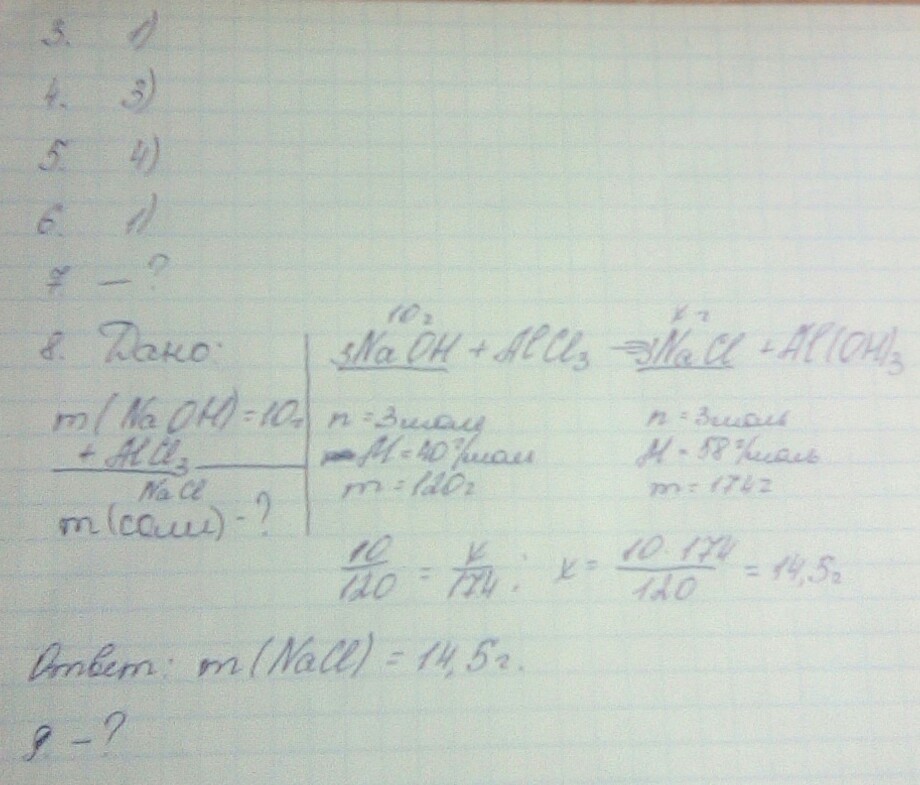 3. 1)
4. 3)
5. 4)
6. 1)
7 – ?
8. Дано:
m(NaOH)=10г
+ AlCl₃
NaCl
m(соли) - ?
10г х г
3NaOH + AlCl₃ ⇒ 3NaCl + Al(OH)₃
n = 3моль n = 3моль
M = 40г/моль M = 58г/моль
m = 120г m = 174г
10/120 = x/174; x = 10·174/120 = 14,5г
Ответ: m(NaCl) = 14,5г.
9 – ?